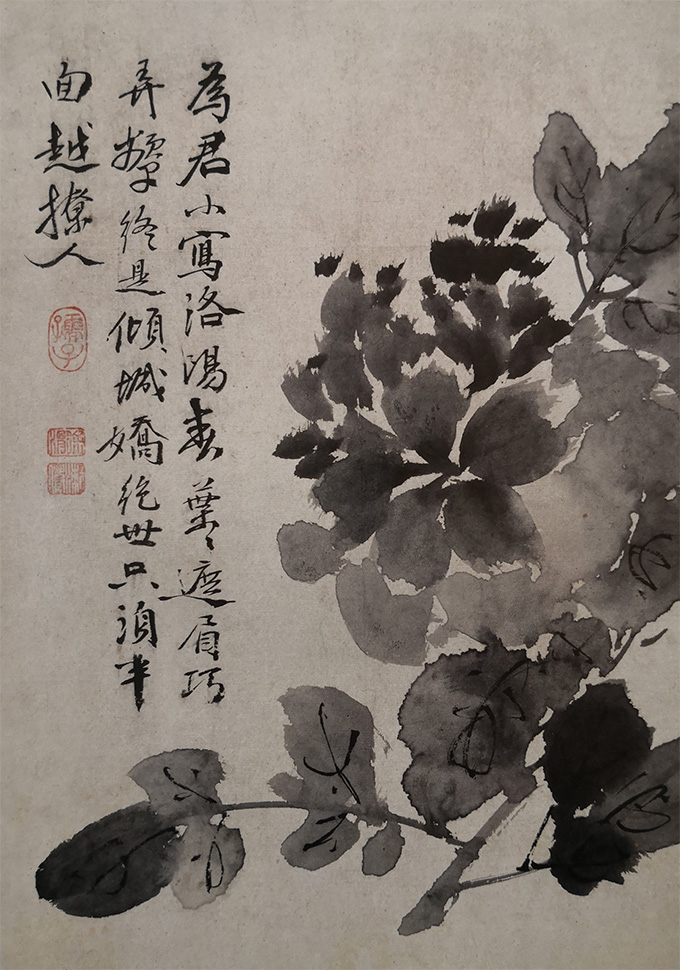 為君小寫洛陽春葉〻遮眉巧
弄顰終是傾城嬌絕世只須半
面越撩人